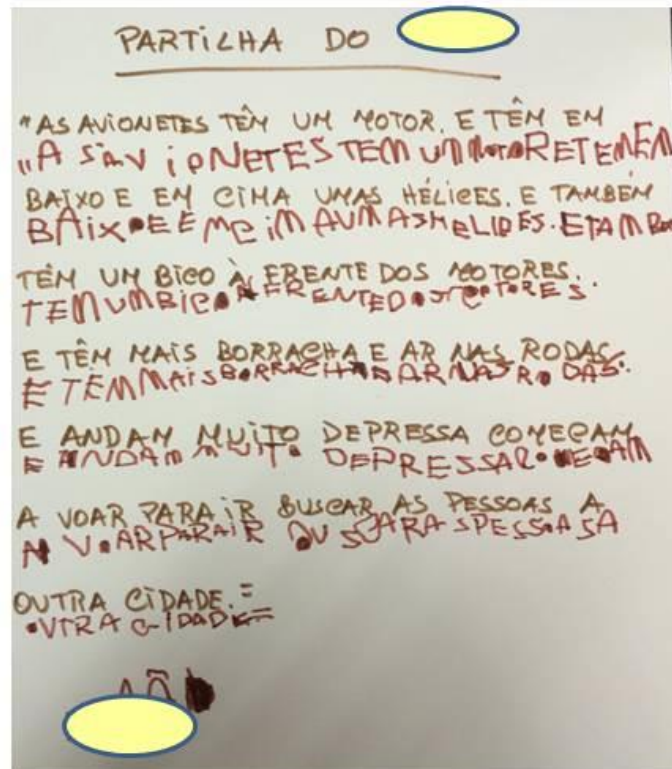 PARTILHA DO
"AS AVIONETES TÊM UM MOTOR. E TÊM EM
"A SAV iONETES TEM UM MOTORE TEMEM
BAIXO E EM CIMA UMAS HÉLICES. E TAMBÉM
BAIXOEEMCiMAUMASHELICES. ETAMB
TÊM UM BICO À FRENTE DOS MOTORES.
TEMUMBICOÀFRENTEDOSMOTORES.
E TÊM MAIS BORRACHA E AR NAS RODAS.
E TÊMMAiSBORRACHAEARNASRODAS.
E ANDAM MUITO DEPRESSA COMEÇAM
E ANDAM MUITO DEPRESSACOMEÇAM
A VOAR PARA IR BUSCAR AS PESSOAS A
A VOARPARAIR BUSCARASPESSOASA
OUTRA CIDADE.=
OUTRA CIDADE=